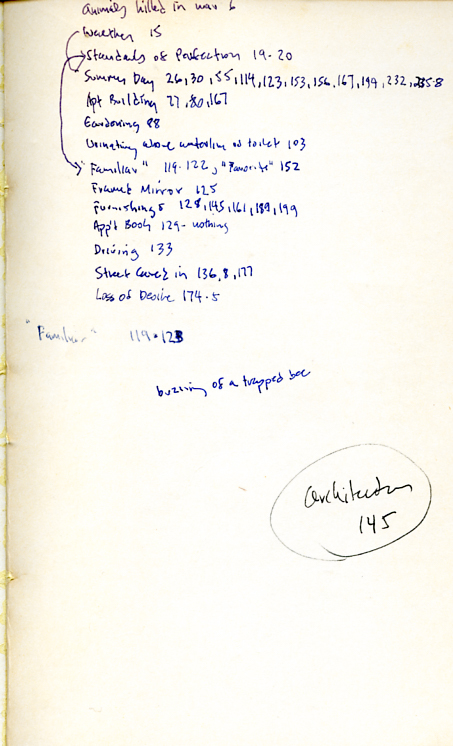 Animals killed in war 6
Weather 15
Standards of Perfection 19-20
Summer Day 26,30,55,114,123,153,156,167,194,232,235-8
Apt Building 27,80,167
Gardening 88
Urinating above waterline in toilet 103
"Familiar" 119-122, "Favorite" 152
Framed Mirror 125
Furnishings 128,145,161,189,199
App't Book 129- nothing
Driving 133
Street Caved in 136,8,177
Loss of Desire 174-5
"Familiar" 119-123
buzzing of a trapped bee
architecture
145